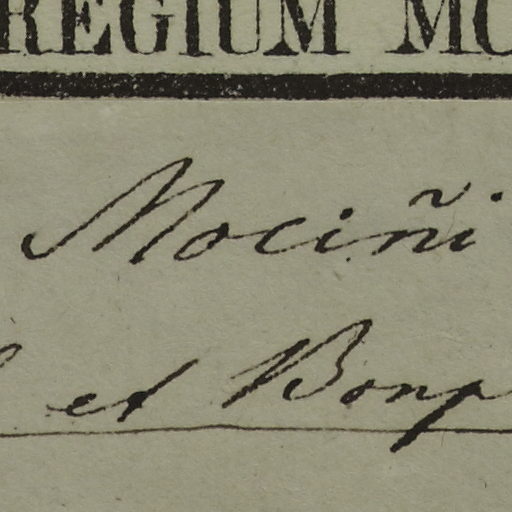 REGIUM MO
Mociñi
et Bonp